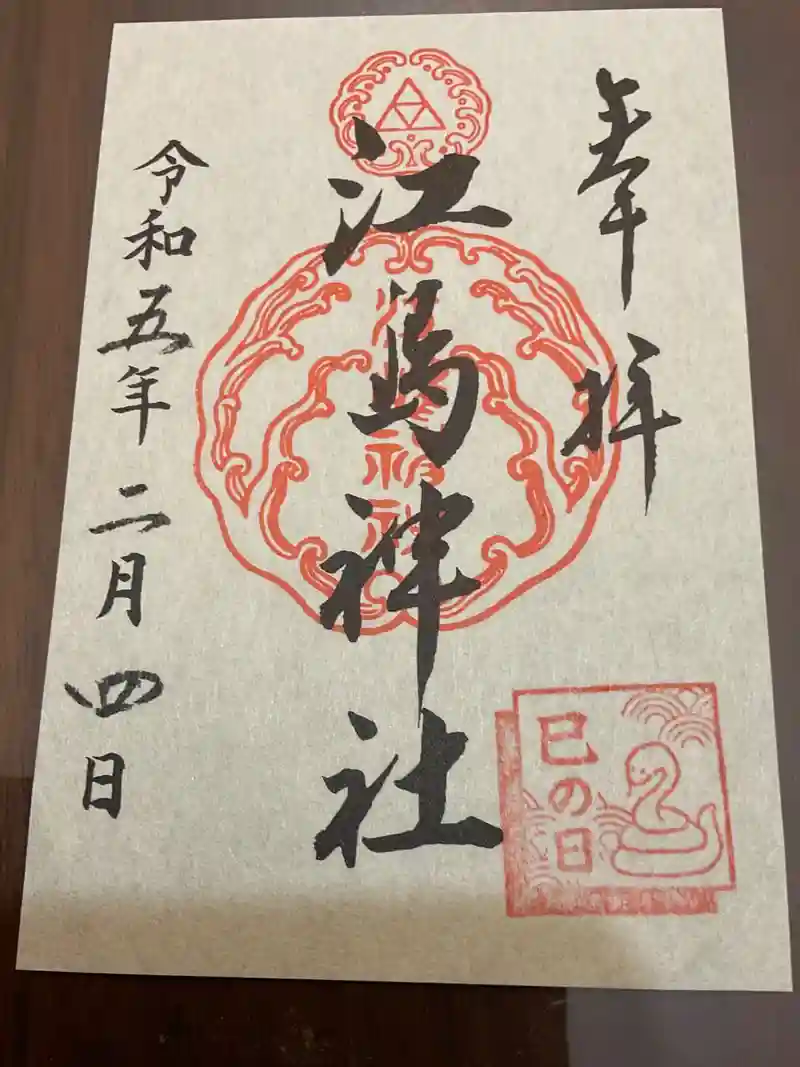 奉拝
江島神社
巳の日
令和五年二月四日